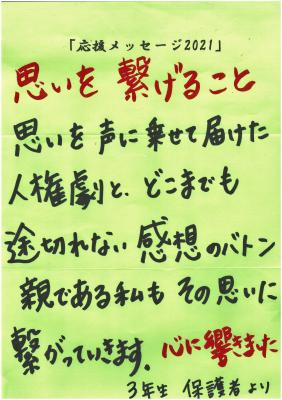 「応援メッセージ2021」
思いを 繋げること
思いを声に乗せて届けた
人権劇と、どこまでも
途切れない 感想のバトン
親である私も その思いに
繋がっていきます。心に響きました
3年生 保護者より